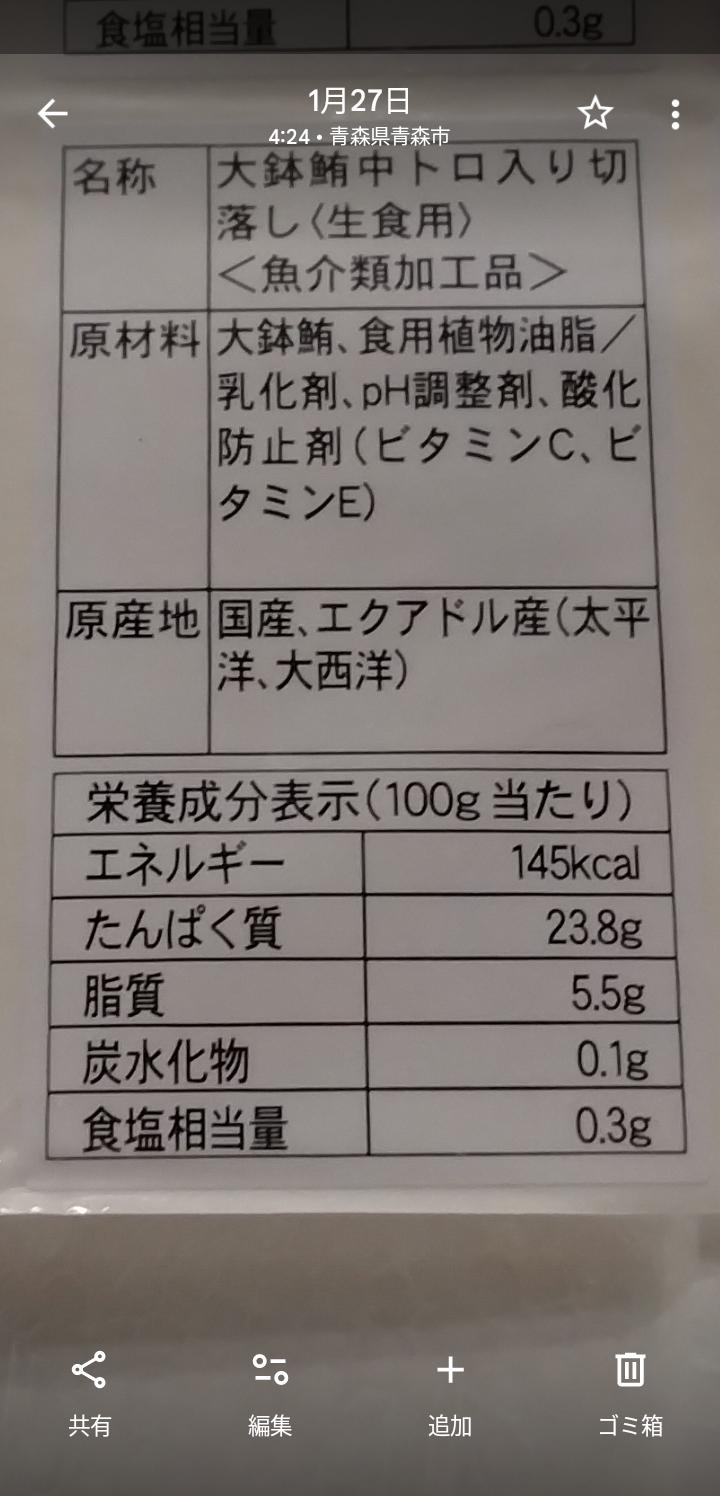 食塩相当量 0.3g
1月27日
4:24・青森県青森市
名称 大鉢鮪中トロ入り切
落し〈生食用〉
＜魚介類加工品＞
原材料 大鉢鮪、食用植物油脂／
乳化剤、pH調整剤、酸化
防止剤（ビタミンC、ビ
タミンE）
原産地 国産、エクアドル産（太平
洋、大西洋）
栄養成分表示（100g当たり）
エネルギー 145kcal
たんぱく質 23.8g
脂質 5.5g
炭水化物 0.1g
食塩相当量 0.3g
共有 編集 追加 ゴミ箱